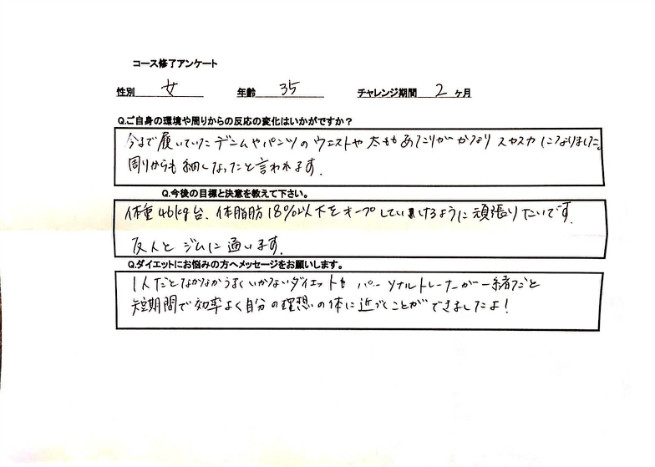 コース修了アンケート
性別 女 年齢 35 チャレンジ期間 2 ヶ月
Q.ご自身の環境や周りからの反応の変化はいかがですか？
今まで履いていたデニムやパンツのウエストや太ももあたりがかなりスカスカになりました。
周りからも細くなったと言われます。
Q.今後の目標と決意を教えて下さい。
体重46kg台、体脂肪18%以下をキープしていけるように頑張りたいです。
友人とジムに通います。
Q.ダイエットにお悩みの方へメッセージをお願いします。
1人だとなかなかうまくいかないダイエットもパーソナルトレーナーが一緒だと
短期間で効率よく自分の理想の体に近づくことができましたよ！